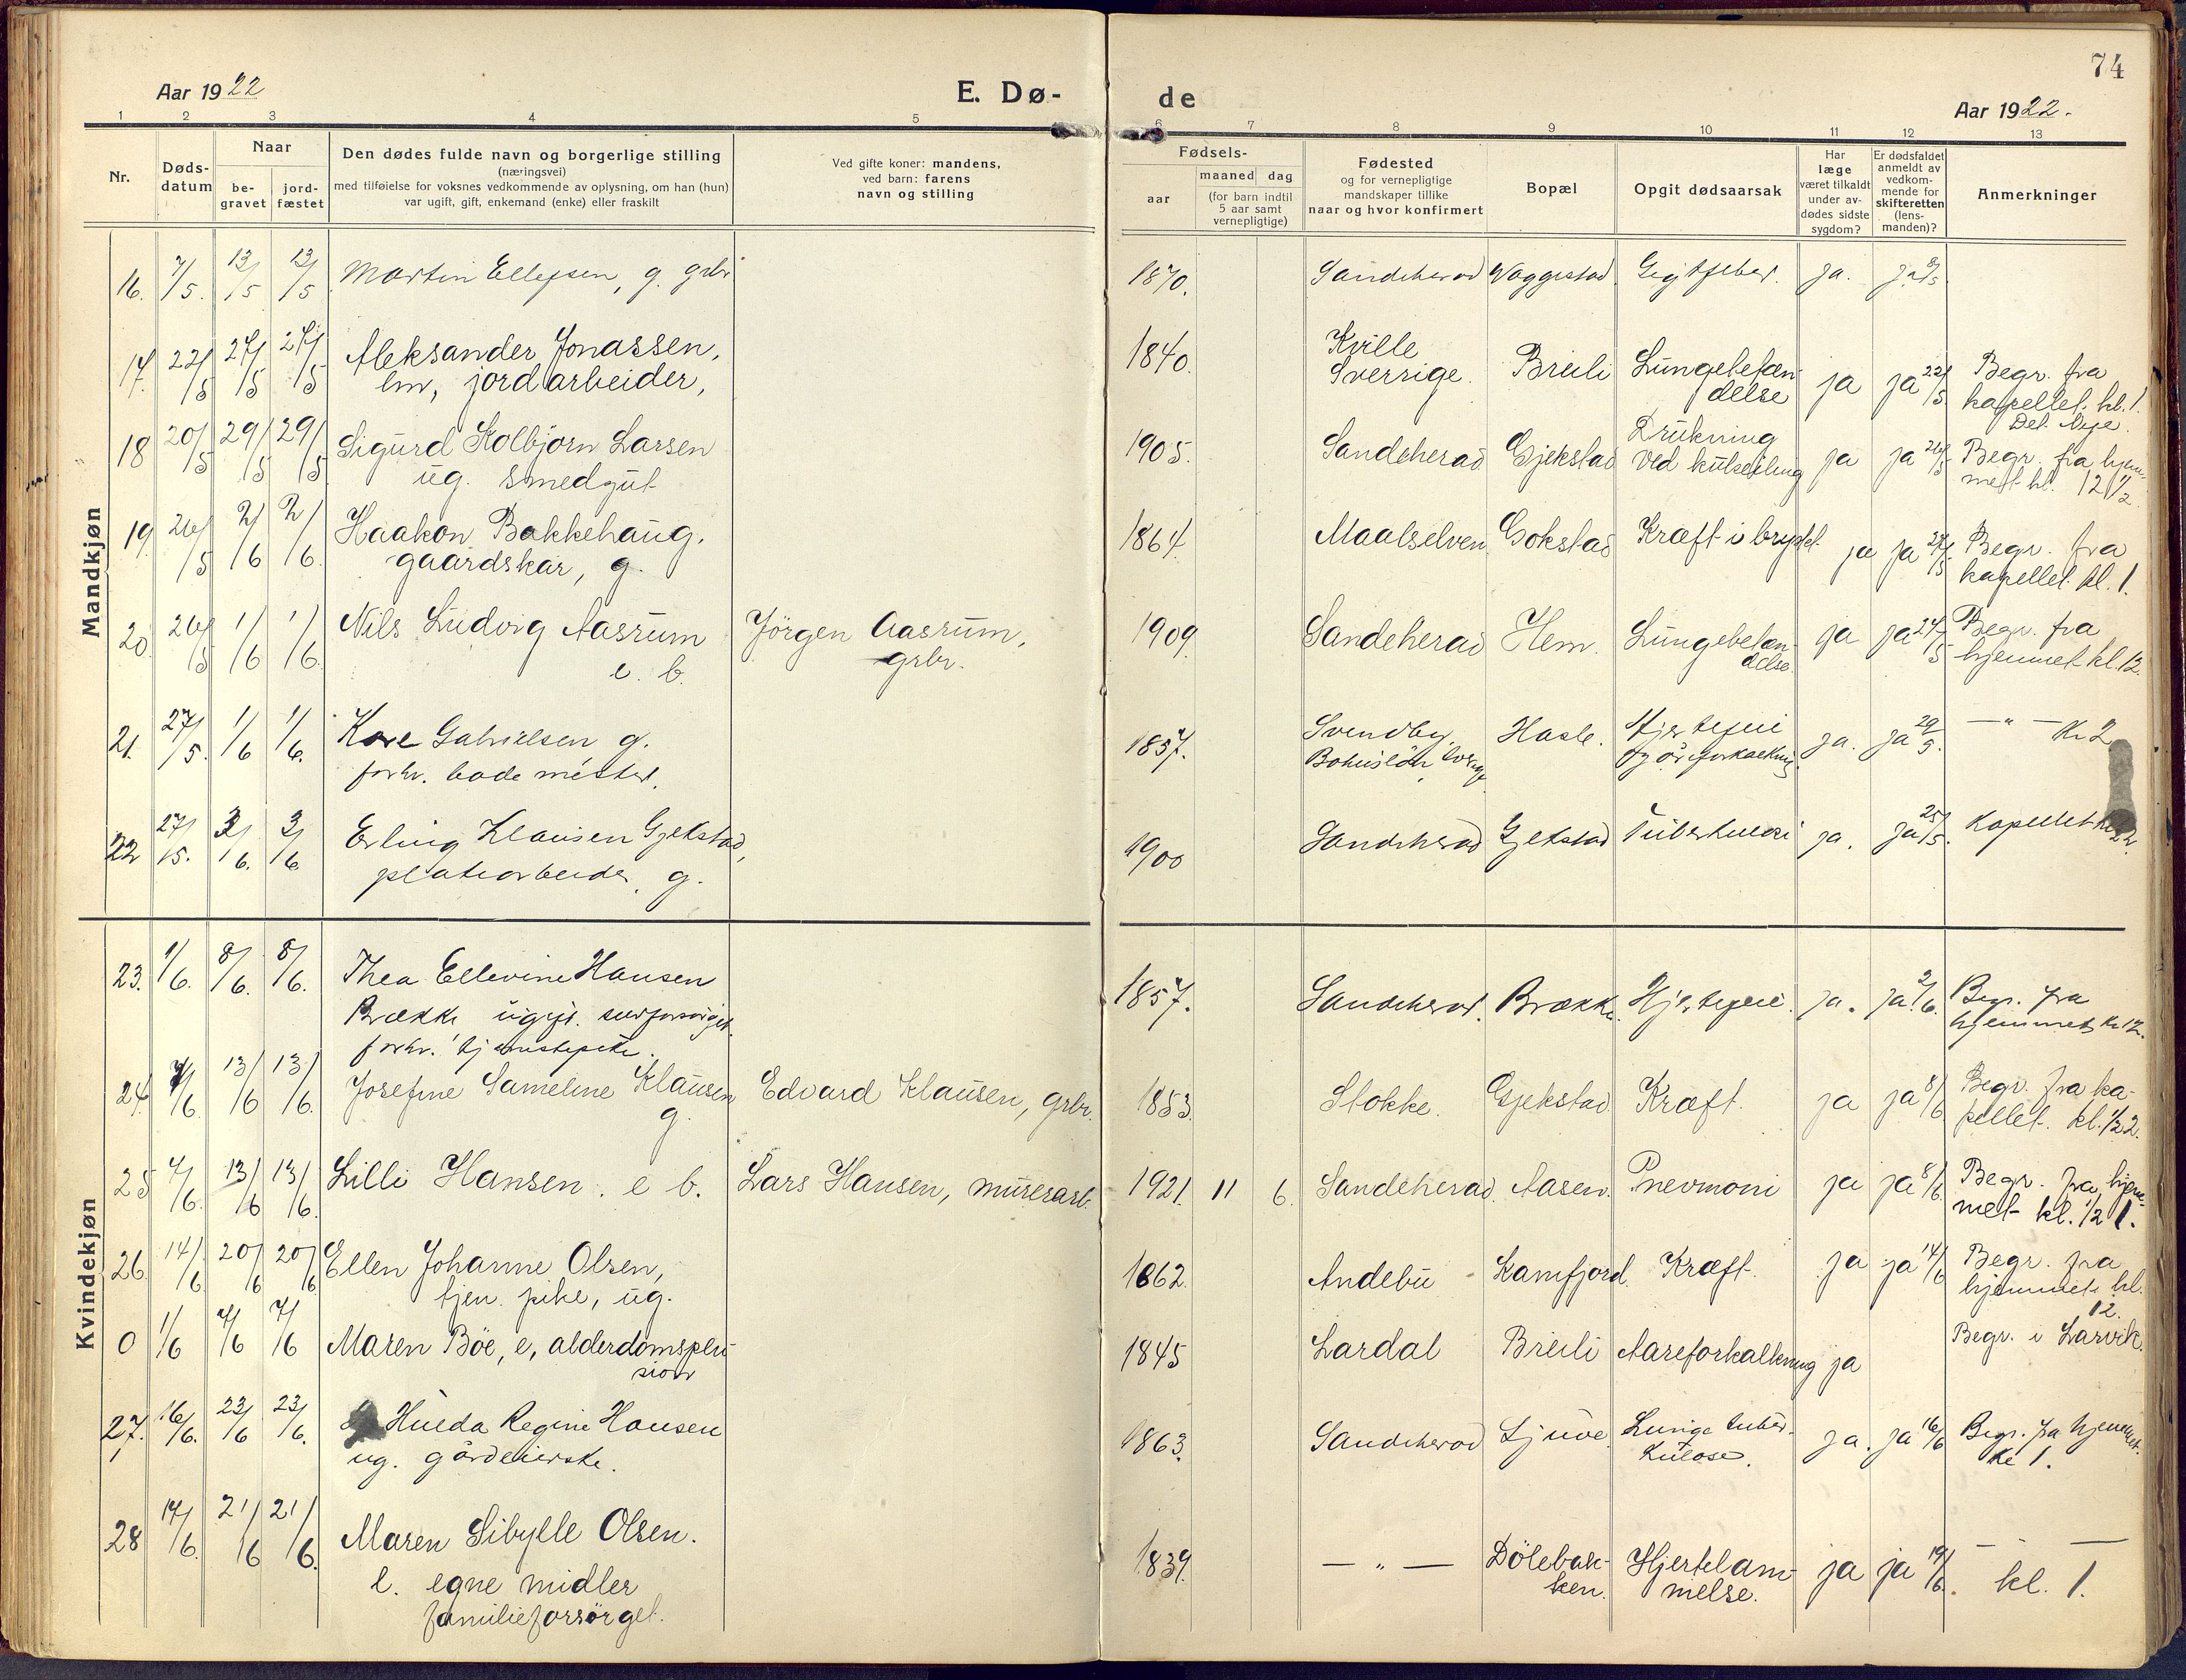 74
Aar 1922
E. Dø-
de
Aar 1922.
1 2 3 4 5 6 7 8 9 10 11 12 13
Nr.
Døds-
datum
Naar
be-
gravet
jord-
fæstet
Den dødes fulde navn og borgerlige stilling
(næringsvei)
med tilføielse for voksnes vedkommende av oplysning, om han (hun)
var ugift, gift, enkemand (enke) eller fraskilt
Ved gifte koner: mandens,
ved barn: farens
navn og stilling
Fødsels-
aar
maaned dag
(for barn indtil
5 aar samt
vernepligtige)
Fødested
og for vernepligtige
mandskaper tillike
naar og hvor konfirmert
Bopæl
Opgit dødsaarsak
Har
læge
været tilkaldt
under av-
dødes sidste
sygdom?
Er dødsfaldet
anmeldt av
vedkom-
mende for
skifteretten
(lens-
manden)?
Anmerkninger
Mandkjøn
16. 7/5. 13/5 13/5 Martin Ellefsen, g. grbr. 1870. Sandeherad Vaggestad. Gigtfeber. ja. ja 9/5
17. 22/5 27/5 27/5 Aleksander Jonassen,
em, jordarbeider,
1840. Kville
Sverrige. Breili Lungebetæn-
delse ja ja 22/5 Begr. fra
kapellet. kl. 1.
18 20/5 29/5 29/5 Sigurd Kolbjörn Larsen
ug. smedgut
1905. Sandeherad Gjekstad Drukning
ved kulseiling ja ja 26/5 Begr. fra hjem-
met kl. 12 1/2
19. 26/5 2/6 2/6 Haakon Bakkehaug.
gaardskar, g.
1864. Maalselven Gokstad Kræft i brystet ja ja 27/5 Begr. fra
kapellet kl. 1.
20. 26/5 1/6 1/6. Nils Ludvig Aasrum
e. b.
Jörgen Aasrum,
grbr.
1909. Sandeherad Hem. Lungebetæn-
delse. ja ja 27/5 Begr. fra
hjemmet kl. 12.
21. 27/5. 1/6 1/6. Kare Gabrielsen g.
forhv. bademester.
1857. Svendby,
Bohuslän Sverige Hasle. Hjertefeil
og åreforkalkning. ja. ja 29/5. — " — Kl 2
22 27/5. 3/6. 3/6 Erling Klausen Gjekstad,
platearbeider. g.
1900 Sandeherad Gjekstad Tuberkulose ja. ja 25/5. Kapellet
Kvindekjøn
23. 1/6. 8/6. 8/6. Thea Ellevine Hansen
Brække ugift. selvforsörget.
forhv. tjenestepike.
1857. Sandeherad. Brække. Hjertefeil. ja. ja 2/6. Begr. fra
hjemmet kl 12.
24. 7/6. 13/6 13/6. Josefine Sameline Klausen
g.
Edvard Klausen, grbr. 1853. Stokke. Gjekstad. Kræft. ja ja 8/6 Begr. fra ka-
pellet. kl. 1/2 2.
25 7/6. 13/6 13/6. Lilli Hansen. e b. Lars Hansen, murerarb. 1921. 11 6. Sandeherad. Aasen. Pnevmoni ja ja 8/6. Begr. fra hjem-
met kl. 1/2 1.
26. 14/6 20/6 20/6 Ellen Johanne Olsen,
tjen. pike, ug.
1862. Andebu Kamfjord. Kræft. ja ja 14/6 Begr. fra
hjemmet kl.
12.
0 1/6 7/6 7/6 Maren Böe, e, alderdomspen-
sion
1845 Lardal Breili Aareforkalkning ja Begr. i Larvik.
27. 16/6. 23/6 23/6. Hulda Regine Hansen
ug. gårdeierske.
1863. Sandeherad Ljüve. Lunge tuber-
kulose. ja. ja 16/6 Begr. fra hjemmet.
kl 1.
28 17/6. 21/6 21/6. Maren Sibylle Olsen.
e. egne midler
familieforsörget.
1839. — " — Dölebak-
ken. Hjertelam-
melse. ja ja 19/6. — —
kl. 1.